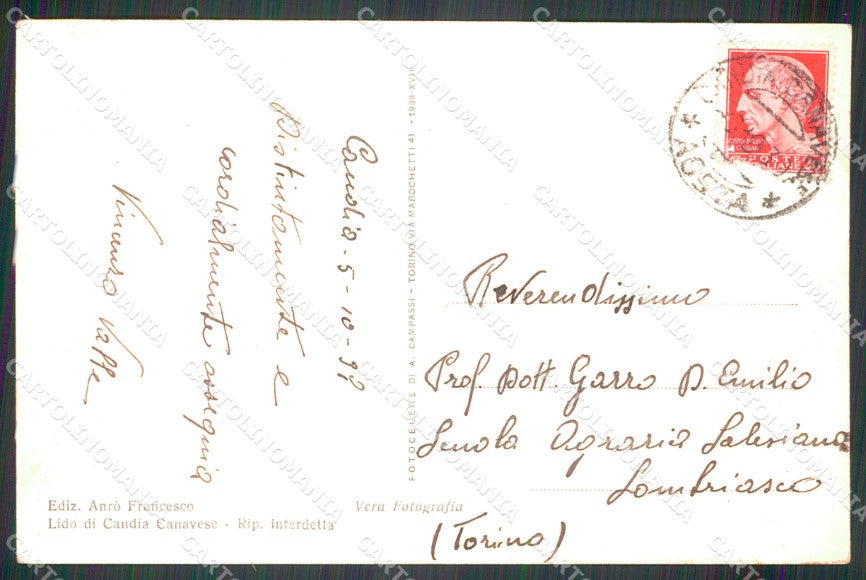 Candia - 5-10-39
Distintamente e
cordialmente ossequia
Vincenzo
Ediz. Anrò Francesco
Lido di Candia Canavese - Rip. Interdetta
Vera Fotografia
FOTOCELERE DI A. CAMPASSI - TORINO VIA MAROCHETTI 41 - 1939-XVII
POSTE
ITALIANE
AOSTA
Reverendissimo
Prof. Dott. Garro D. Emilio
Scuola Agraria Salesiana
Lombriasco
(Torino)
CARTOLINOMANIA